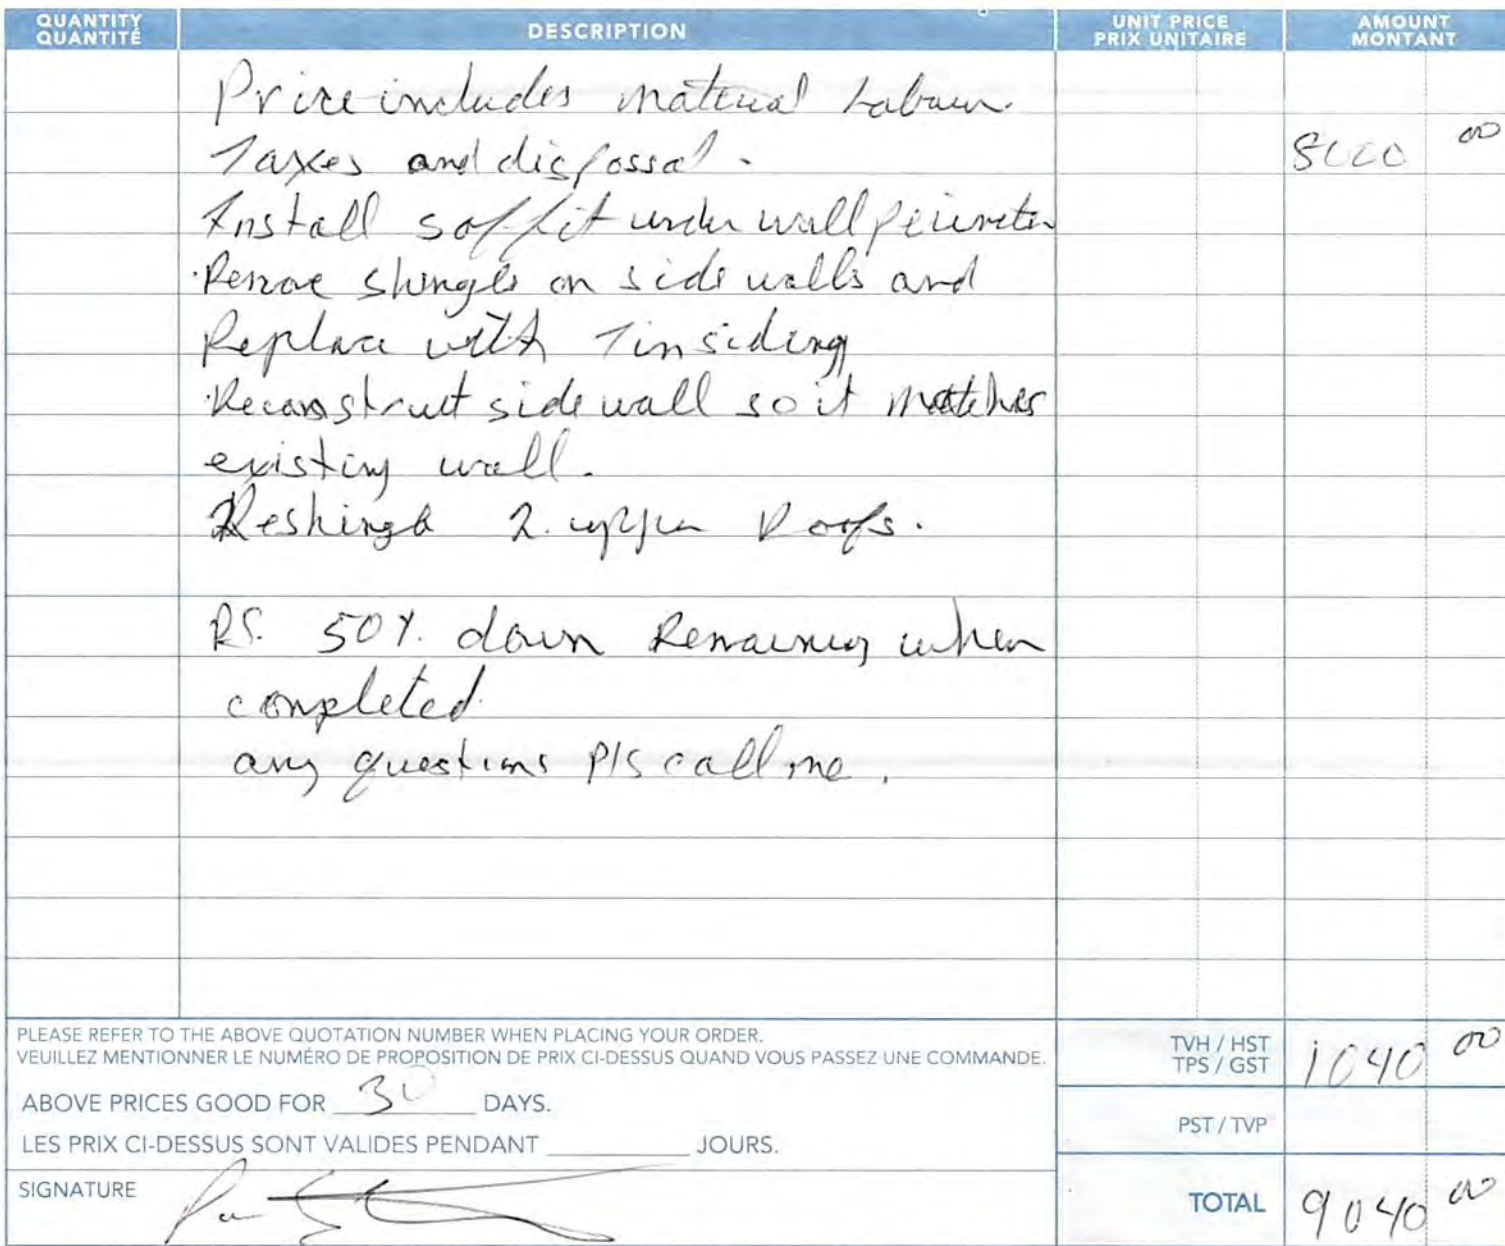 QUANTITY
QUANTITÉ
DESCRIPTION
UNIT PRICE
PRIX UNITAIRE
AMOUNT
MONTANT
Price includes material Labour.
Taxes and dispossal. 8000 00
Install soffit under wall perimeter
·Remove shingles on side walls and
Replace with Tin siding
·Reconstruct side wall so it matches
existing wall.
Reshingle 2. upper Roofs.
PS. 50%. down Remaining when
completed.
any questions pls call me.
PLEASE REFER TO THE ABOVE QUOTATION NUMBER WHEN PLACING YOUR ORDER.
VEUILLEZ MENTIONNER LE NUMÉRO DE PROPOSITION DE PRIX CI-DESSUS QUAND VOUS PASSEZ UNE COMMANDE.
TVH / HST
TPS / GST
1040 00
ABOVE PRICES GOOD FOR 30 DAYS.
PST / TVP
LES PRIX CI-DESSUS SONT VALIDES PENDANT ______ JOURS.
SIGNATURE
TOTAL 9040 00